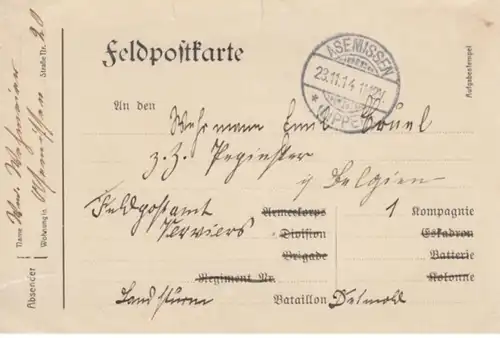 Feldpostkarte
ASEMISSEN
23.11.14. 11-12V
* (LIPPE)
Aufgabestempel
An den
Wehrmann Emil
z. Z. Pepinster
Belgien
Feldpostamt
Verviers
Armeekorps
Division
Brigade
Regiment Nr.
1 Kompagnie
Eskadron
Batterie
Kolonne
Landsturm Bataillon Detmold
Absender
Name
Wohnung in Asemissen Straße Nr. 20